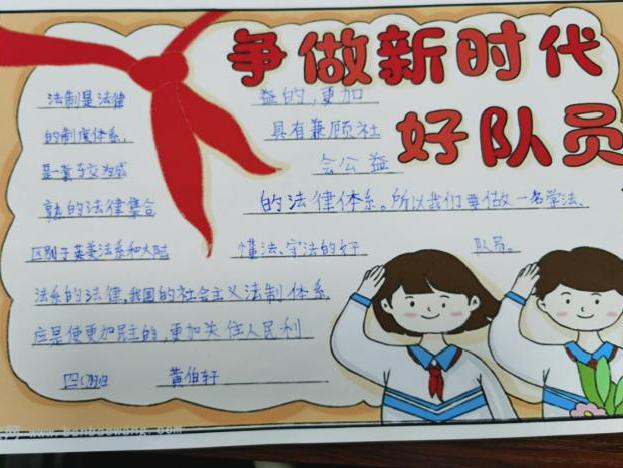 争做新时代
好队员
法制是法律
的制度体系,
是一套较为成
熟的法律集合
区别于英美法系和大陆
法系的法律,我国的社会主义法制体系,
应是使更加民主的,更加关住人民利
益的,更加
具有兼顾社
会公益
的法律体系。所以我们要做一名学法、
懂法、守法的好
队员。
黄伯轩